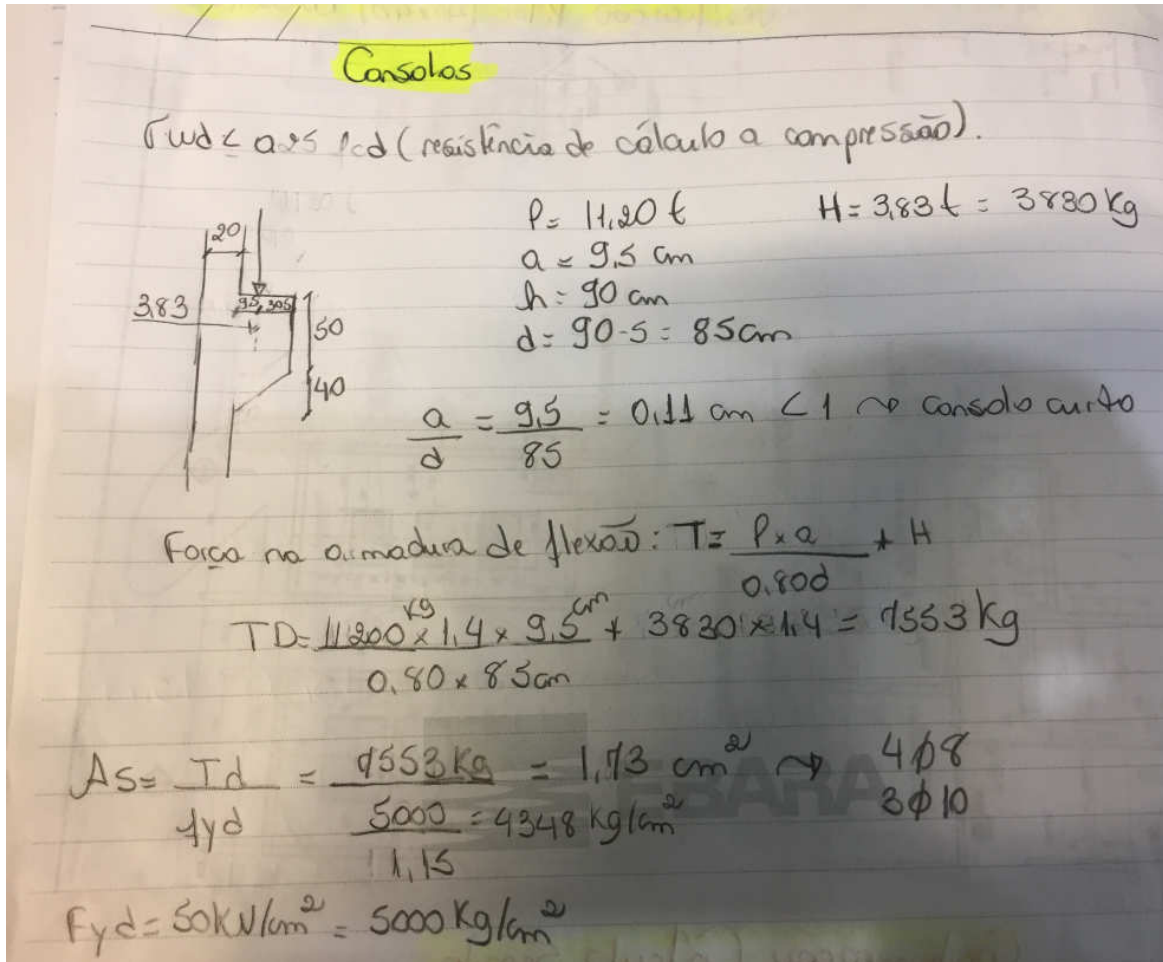 Consolos
σwd ≤ 0,25 fcd (resistência de cálculo a compressão).
P= 11,20 t H= 3,83 t = 3830 Kg
a = 9,5 cm
h= 90 cm
d= 90-5 = 85cm
20
3,83
9,5 30,5
50
40
a/d = 9,5/85 = 0,11 cm < 1 ~> consolo curto
Força na armadura de flexão: T= P x a / 0,80d + H
TD= 11200 kg x 1,4 x 9,5 cm / 0,80 x 85cm + 3830 x 1,4 = 7553 kg
As= Td/fyd = 7553 Kg / 5000/1,15 = 4348 kg/cm² = 1,73 cm² ~> 4ϕ8
3ϕ10
Fyd= 50KN/cm² = 5000 Kg/cm²
EBARA